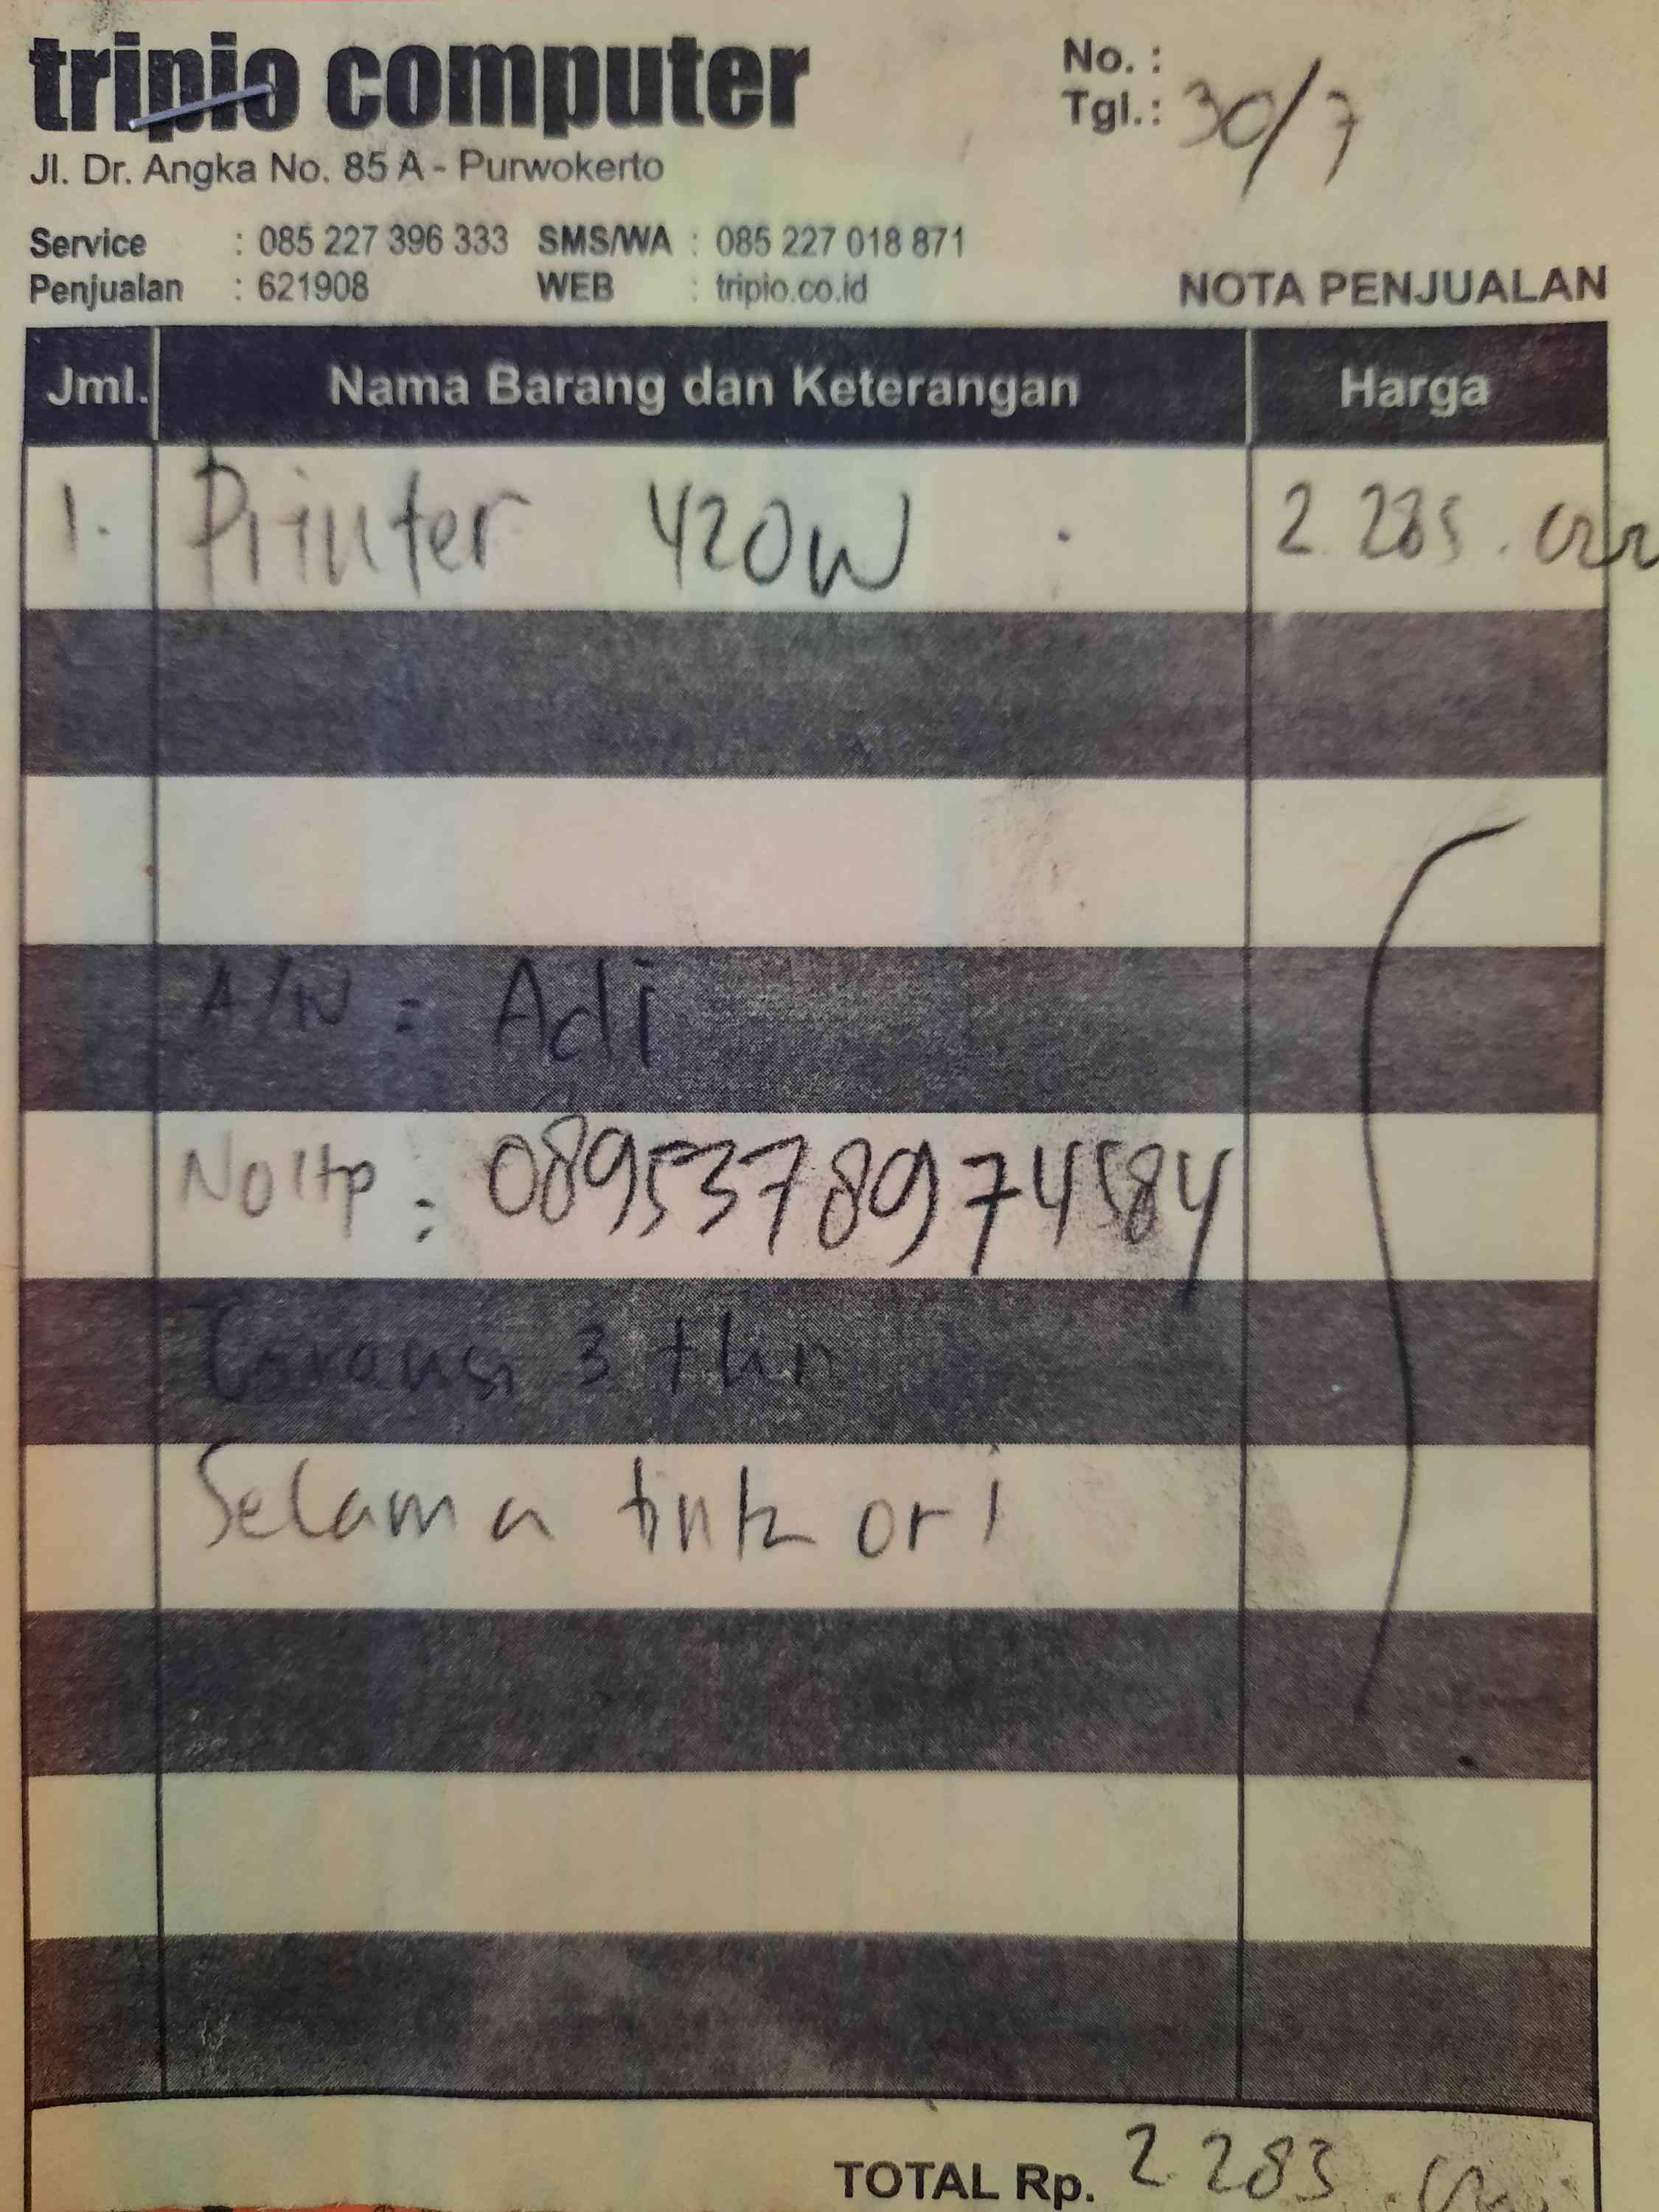 tripio computer
No. :
Tgl. : 30/7
Jl. Dr. Angka No. 85 A - Purwokerto
Service : 085 227 396 333 SMS/WA : 085 227 018 871
Penjualan : 621908 WEB : tripio.co.id
NOTA PENJUALAN
Jml. Nama Barang dan Keterangan Harga
1. Printer 420W 2.285.000
A/N = Adi
No Hp : 0895378974584
Garansi 3 thn
Selama tinta ori
TOTAL Rp. 2 285.000